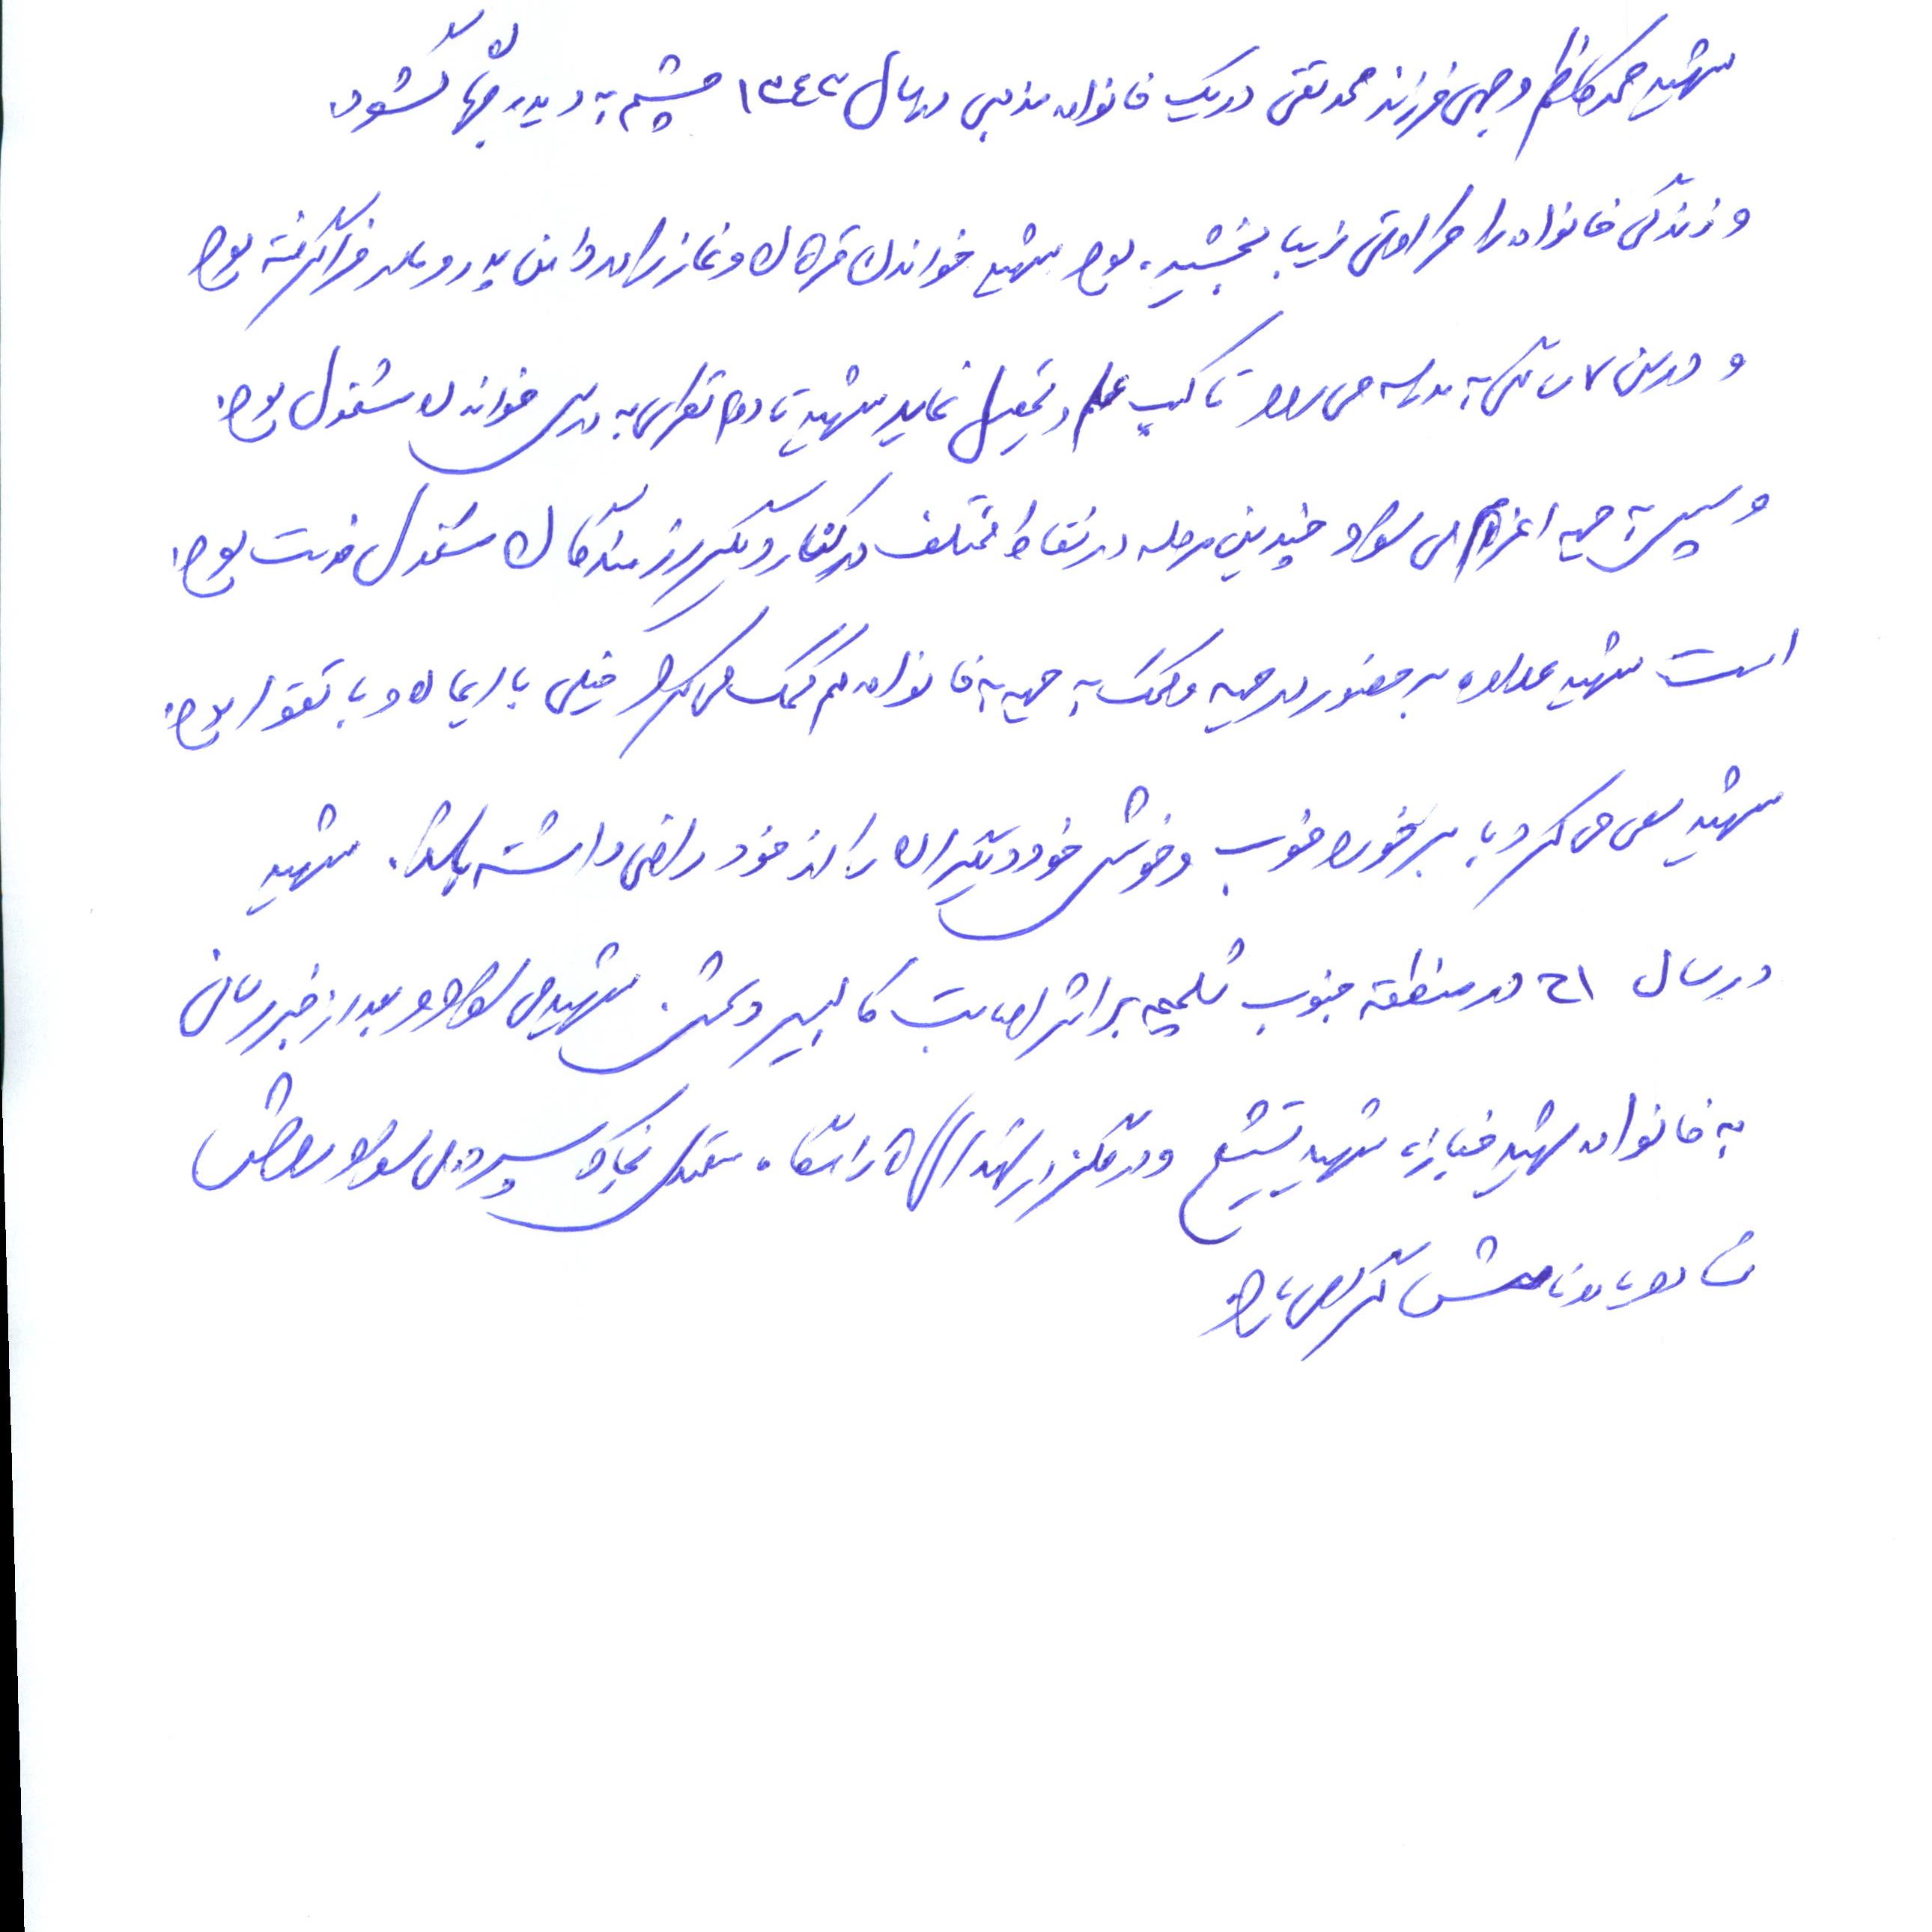 شهید محمدکاظم وجهی فرزند محمدتقی در یک خانواده مذهبی در سال ۱۳۴۳ چشم به دیده جهان گشود.
و زندگی خانواده را زیبا بخشید. شهید خواندن قرآن و نماز را در دامن پدر و مادر فرا گرفته بود
و در سن ۷ سالگی به مدرسه می رود تا کسب علم و تحصیل نماید شهید تا دوم به درس خواندن مشغول بود.
و سپس به جبهه اعزام می شود و چندین مرحله در نقاط مختلف در کنار دیگر رزمندگان مشغول خدمت بوده
است شهید علاوه بر حضور در جبهه و کمک به جبهه به خانواده هم کمک می کرد خیلی با ایمان و با تقوا بود.
شهید سعی می کرد با برخورد خوب و خوش خود دیگران را از خود راضی داشته باشد. شهید
در سال در منطقه جنوب شلمچه بر اثر اصابت کالیبر دشمن شهید می شود و بعد از خبر رسانی
به خانواده شهید جنازه شهید تشییع و در گلزار شهدا آرامگاه بخاک سپرده می شود روحش
شاد و یادش گرامی باد